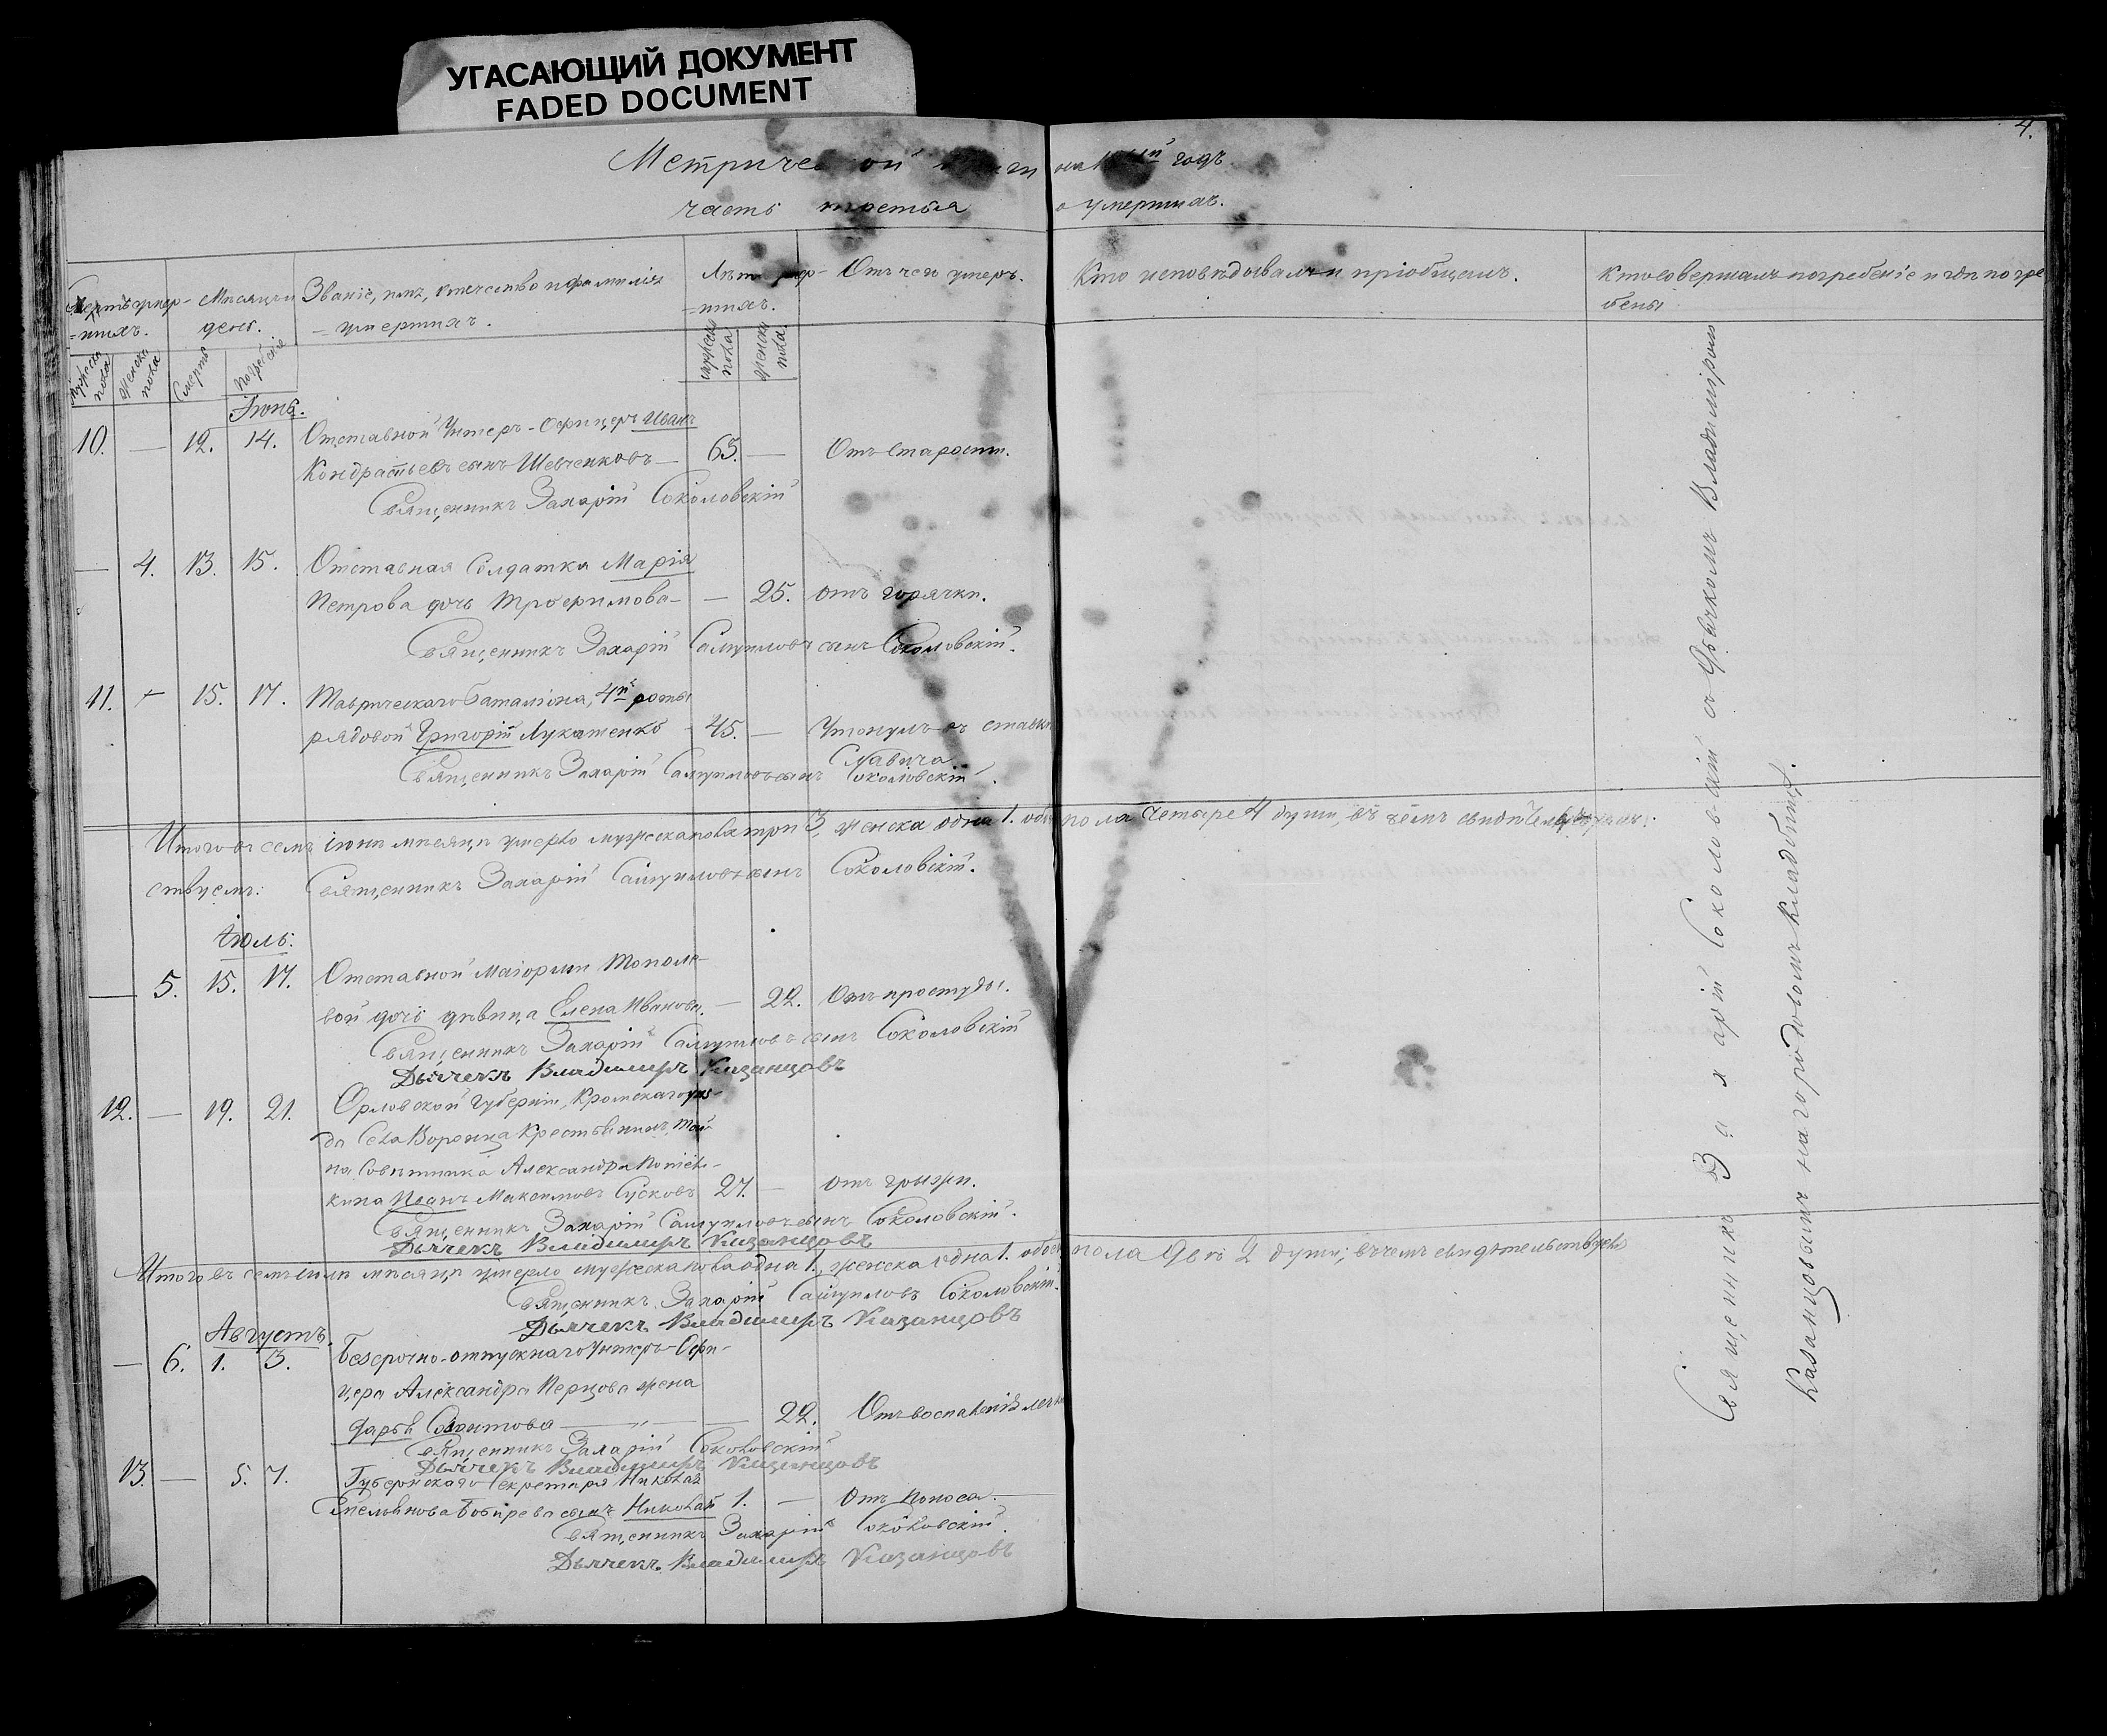 УГАСАЮЩИЙ ДОКУМЕНТ
FADED DOCUMENT
4.
на годъ
часть третья о умершихъ.
Мѣсяцъ и день.
Званіе, имя, отчество и фамилія умершихъ.
Отъ чего умеръ.
Кто исповѣдывалъ и пріобщалъ.
Кто совершалъ погребеніе и гдѣ погребены
Мужеска пола
Женска пола
Смерть
Погребеніе
Мужеска пола
Женска пола
Іюнь.
10. — 12. 14. Отставной Унтеръ-Офицеръ Иванъ
Кондратьевъ сынъ Шевченковъ — 63. — Отъ старости.
Священникъ Захарій Соколовскій
— 4. 13. 15. Отставная Солдатка Марія
Петрова дочь Трофимова — — 25. отъ горячки.
Священникъ Захарій Самуиловъ сынъ Соколовскій.
11. — 15. 17. Таврическаго баталіона, 4й роты
рядовой Григорій Лукашенко - 45. — Утонулъ въ
Священникъ Захарій Самуиловъ сынъ Соколовскій.
Итого въ семъ іюнѣ мѣсяцѣ умерло мужеска пола три 3, женска одна 1. обоего пола четыре 4 души, въ чемъ
ствуемъ: Священникъ Захарій Самуиловъ сынъ Соколовскій.
Іюль.
— 5. 15. 17. Отставной Маіорши Тополе-
вой дочь дѣвица Елена Иванова. — 22. Отъ простуды.
Священникъ Захарій Самуиловъ сынъ Соколовскій
Дьячекъ Владимиръ Казанцовъ
12. — 19. 21. Орловской Губерніи, Кромскаго уѣз-
да Села Воронца Крестьянинъ Тай-
на Совѣтника Александра
Иванъ Максимовъ Сусковъ 27. — отъ грыжи.
Священникъ Захарій Самуиловъ сынъ Соколовскій.
Дьячекъ Владимиръ Казанцовъ
Итого въ семъ іюлѣ мѣсяцѣ умерло мужеска пола одна 1, женска одна 1. обоего пола двѣ 2 души; въ чемъ свидѣтельствуемъ
Священникъ Захарій Самуиловъ Соколовскій.
Дьячекъ Владимиръ Казанцовъ
Августъ.
— 6. 1. 3. Безсрочно-отпускнаго Унтеръ-Офи-
цера Александра Перцова жена
Дарья — 22. Отъ воспаленія
Священникъ Захарій Соколовскій
Дьячекъ Владимиръ Казанцовъ
13. — 5. 7. Губернскаго Секретаря Николая
Емельянова сынъ Николай 1. — Отъ поноса.
Священникъ Захарій Соколовскій.
Дьячекъ Владимиръ Казанцовъ
Священникъ Захарій Соколовскій съ Дьячкомъ Владиміромъ
Казанцовымъ на городовомъ кладбищѣ.